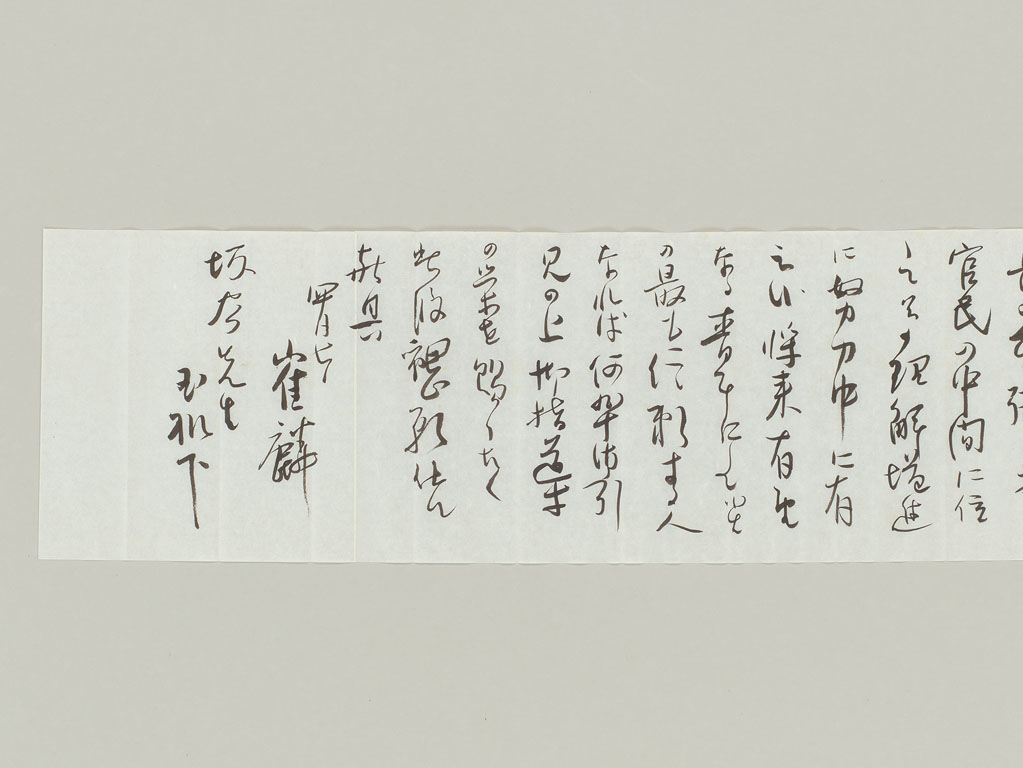 官民の中間に位
して之の理解増進
に努力中に有
之候将来有望
なる青年にして小生
の最も信頼する人
なれば何卒御引
見の上御指導
の栄を賜りたく
此段御願仕候
敬具
四月七日
崔麟
阪谷先生
玉机下